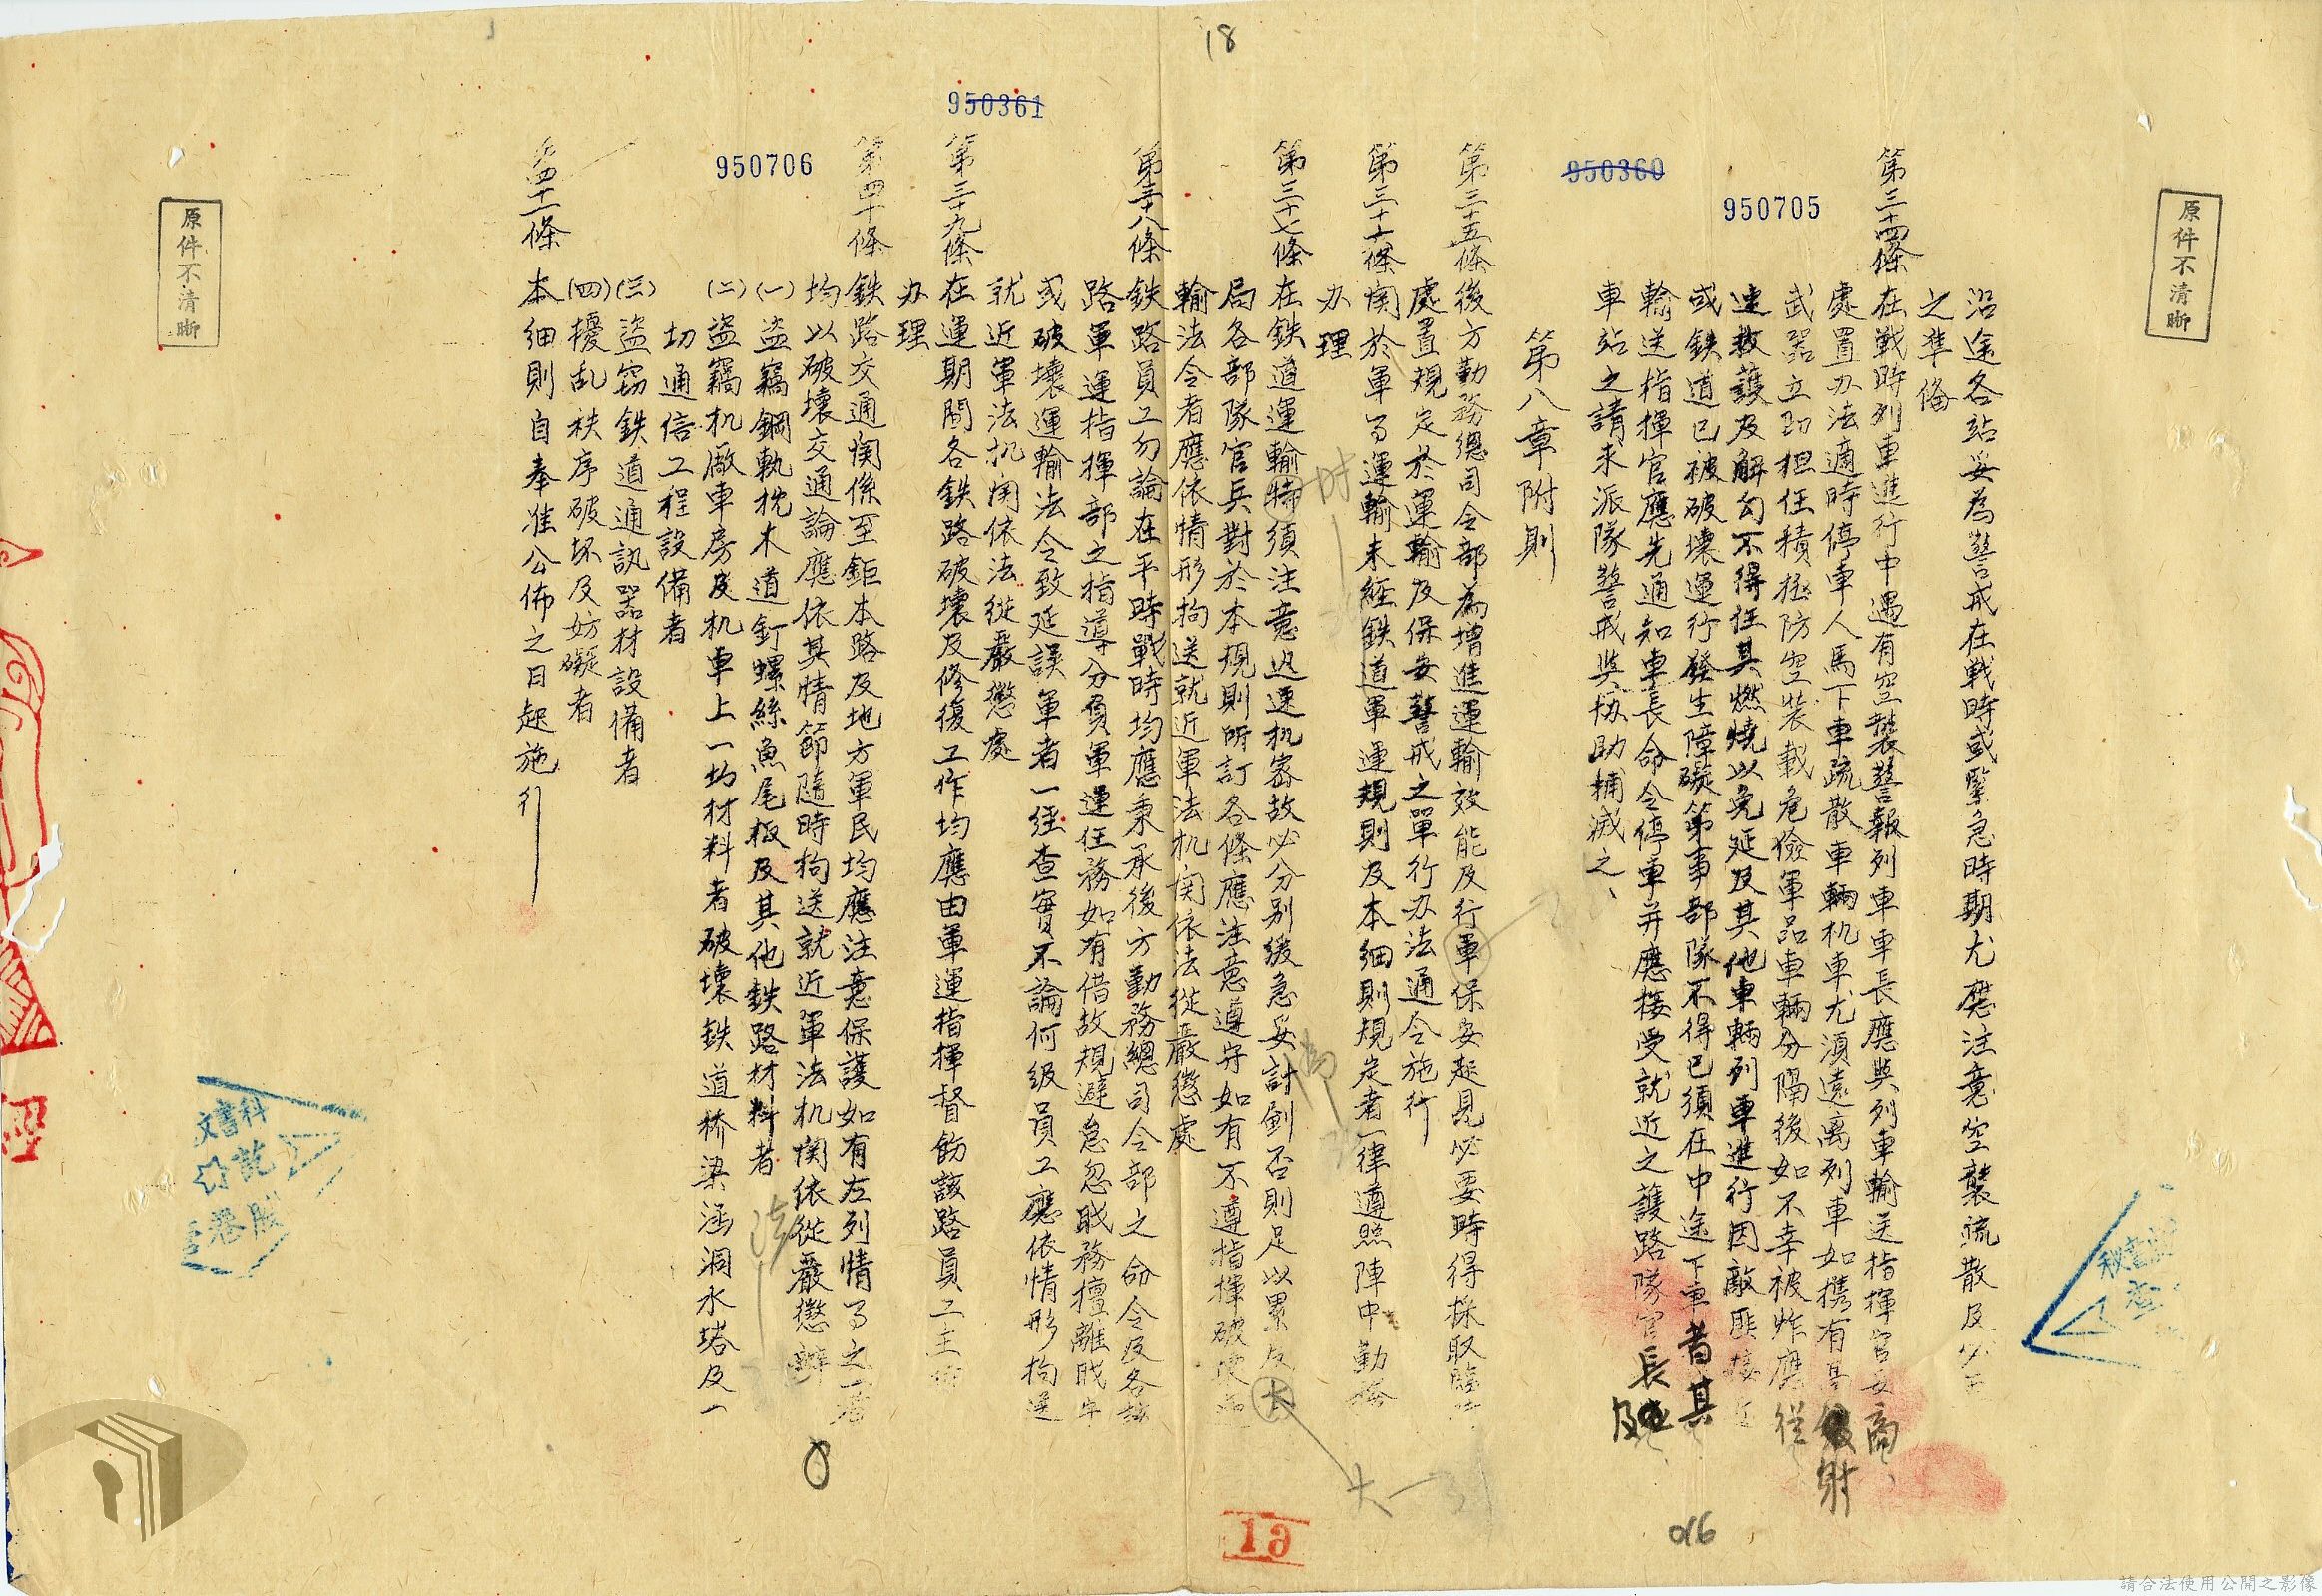 18
950361
950706
950360
950705
原件不清晰
沿途各站妥為警戒在戰時或緊急時期尤應注意空襲疏散及
之準備
第三十四條在戰時列車進行中遇有空襲警報列車車長應與列車輸送指揮官妥商
處置办法適時停車人馬下車疏散車輛机車尤須遠离列車如携有高射
武器立即担任積極防空裝載危險軍品車輛分隔後如不幸被炸應從
速救護及解勾不得任其燃燒以免延及其他車輛列車進行因敵匪壞
或鉄道已被破壞運行發生障礙第事部隊不得已須在中途下車者其
輸送指揮官應先通知車長命令停車并應接受就近之護路隊官長及
車站之請求派隊警戒與协助補滅之、
第八章附則
第三十五條後方勤務總司令部為增進運輸效能及行軍保安起見必要時得採取臨
處置規定於運輸及保安警戒之單行办法通令施行
第三十六條関於軍事運輸未經鉄道軍運規則及本細則規定者一律遵照陣中勤務
办理
第三十七條在鉄道運輸特須注意迅速机密故必分别緩急妥討劃否則足以累及大
局各部隊官兵對於本規則所訂各條應注意遵守如有不遵指揮破壞運
輸法令者應依情形拘送就近軍法机関依法從嚴懲處
第三十八條鉄路員工勿論在平時戰時均應秉承後方勤務總司令部之命令及各該
路軍運指揮部之指導分負軍運任務如有借故規避怠忽職務擅離職守
或破壞運輸法令致延誤軍者一經查實不論何级員工應依情形拘送
就近軍法机関依法從嚴懲處
第三十九條在運期間各鉄路破壞及修復工作均應由軍運指揮督飭該路員工主
办理
第四十條鉄路交通関係至鉅本路及地方軍民均應注意保護如有左列情事之一者
均以破壞交通論應依其情節隨時拘送就近軍法机関依從嚴懲辦
(一)盗竊鋼軌枕木道釘螺絲魚尾板及其他鉄路材料者
(二)盜竊机廠車房及机車上一切材料者破壞鉄道桥梁涵洞水塔及一
切通信工程設備者
(三)盜窃鉄道通訊器材設備者
(四)擾乱秩序破坏及妨礙者
第四十一條本細則自奉准公佈之日起施行
原件不清晰
文書科
19
016
請合法使用公開之影像